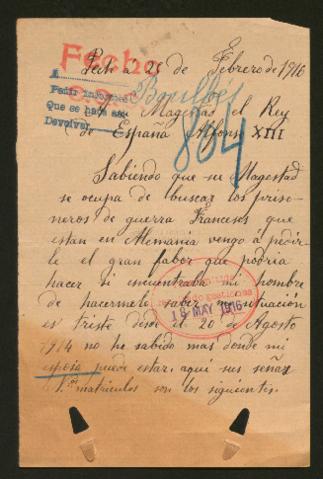 Fecho
á 25 de Febrero de 1916
A
Pedir informes
Que se hace
Devolver
Magestad el Rey
de España Alfonso XIII
804
Sabiendo que su Magestad
se ocupa de buscar los prisio-
neros de guerra Franceses que
estan en Alemania vengo á pedir-
le el gran fabor que podria
hacer si encuntraba mi hombre
de hacermelo saber mi situación
es triste desde el 20 de Agosto
1914 no he sabido mas donde mi
esposo puede estar. aqui sus señas
matriculos son los siguientes.
18 MAY 1916